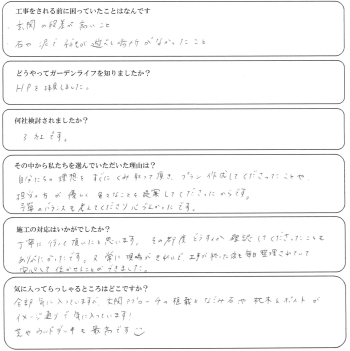 工事をされる前に困っていたことはなんです
・玄関の段差が高いこと
・石や泥で子供が遊べる場所がなかったこと
どうやってガーデンライフを知りましたか？
HPを拝見しました。
何社検討されましたか？
3社です。
その中から私たちを選んでいただいた理由は？
自分たちの理想をすぐにくみ取って頂き、プラン作成してくださったことや
担当の方が優しく、色々なことを提案してくださったからです。
予算のバランスも考えてくださり心づよかったです。
施工の対応はいかがでしたか？
丁寧に行って頂いたと思います。その都度どうするか確認してくださったことも
ありがたかったです。又、常に現場がきれいで、工事が終った後も毎日整理されていて
安心して任せることができました。
気に入ってらっしゃるところはどこですか？
全部気に入っていますが、玄関アプローチの植栽となじみ石や枕木とポストが
イメージ通りで気に入っています！
芝やウッドデッキも最高です